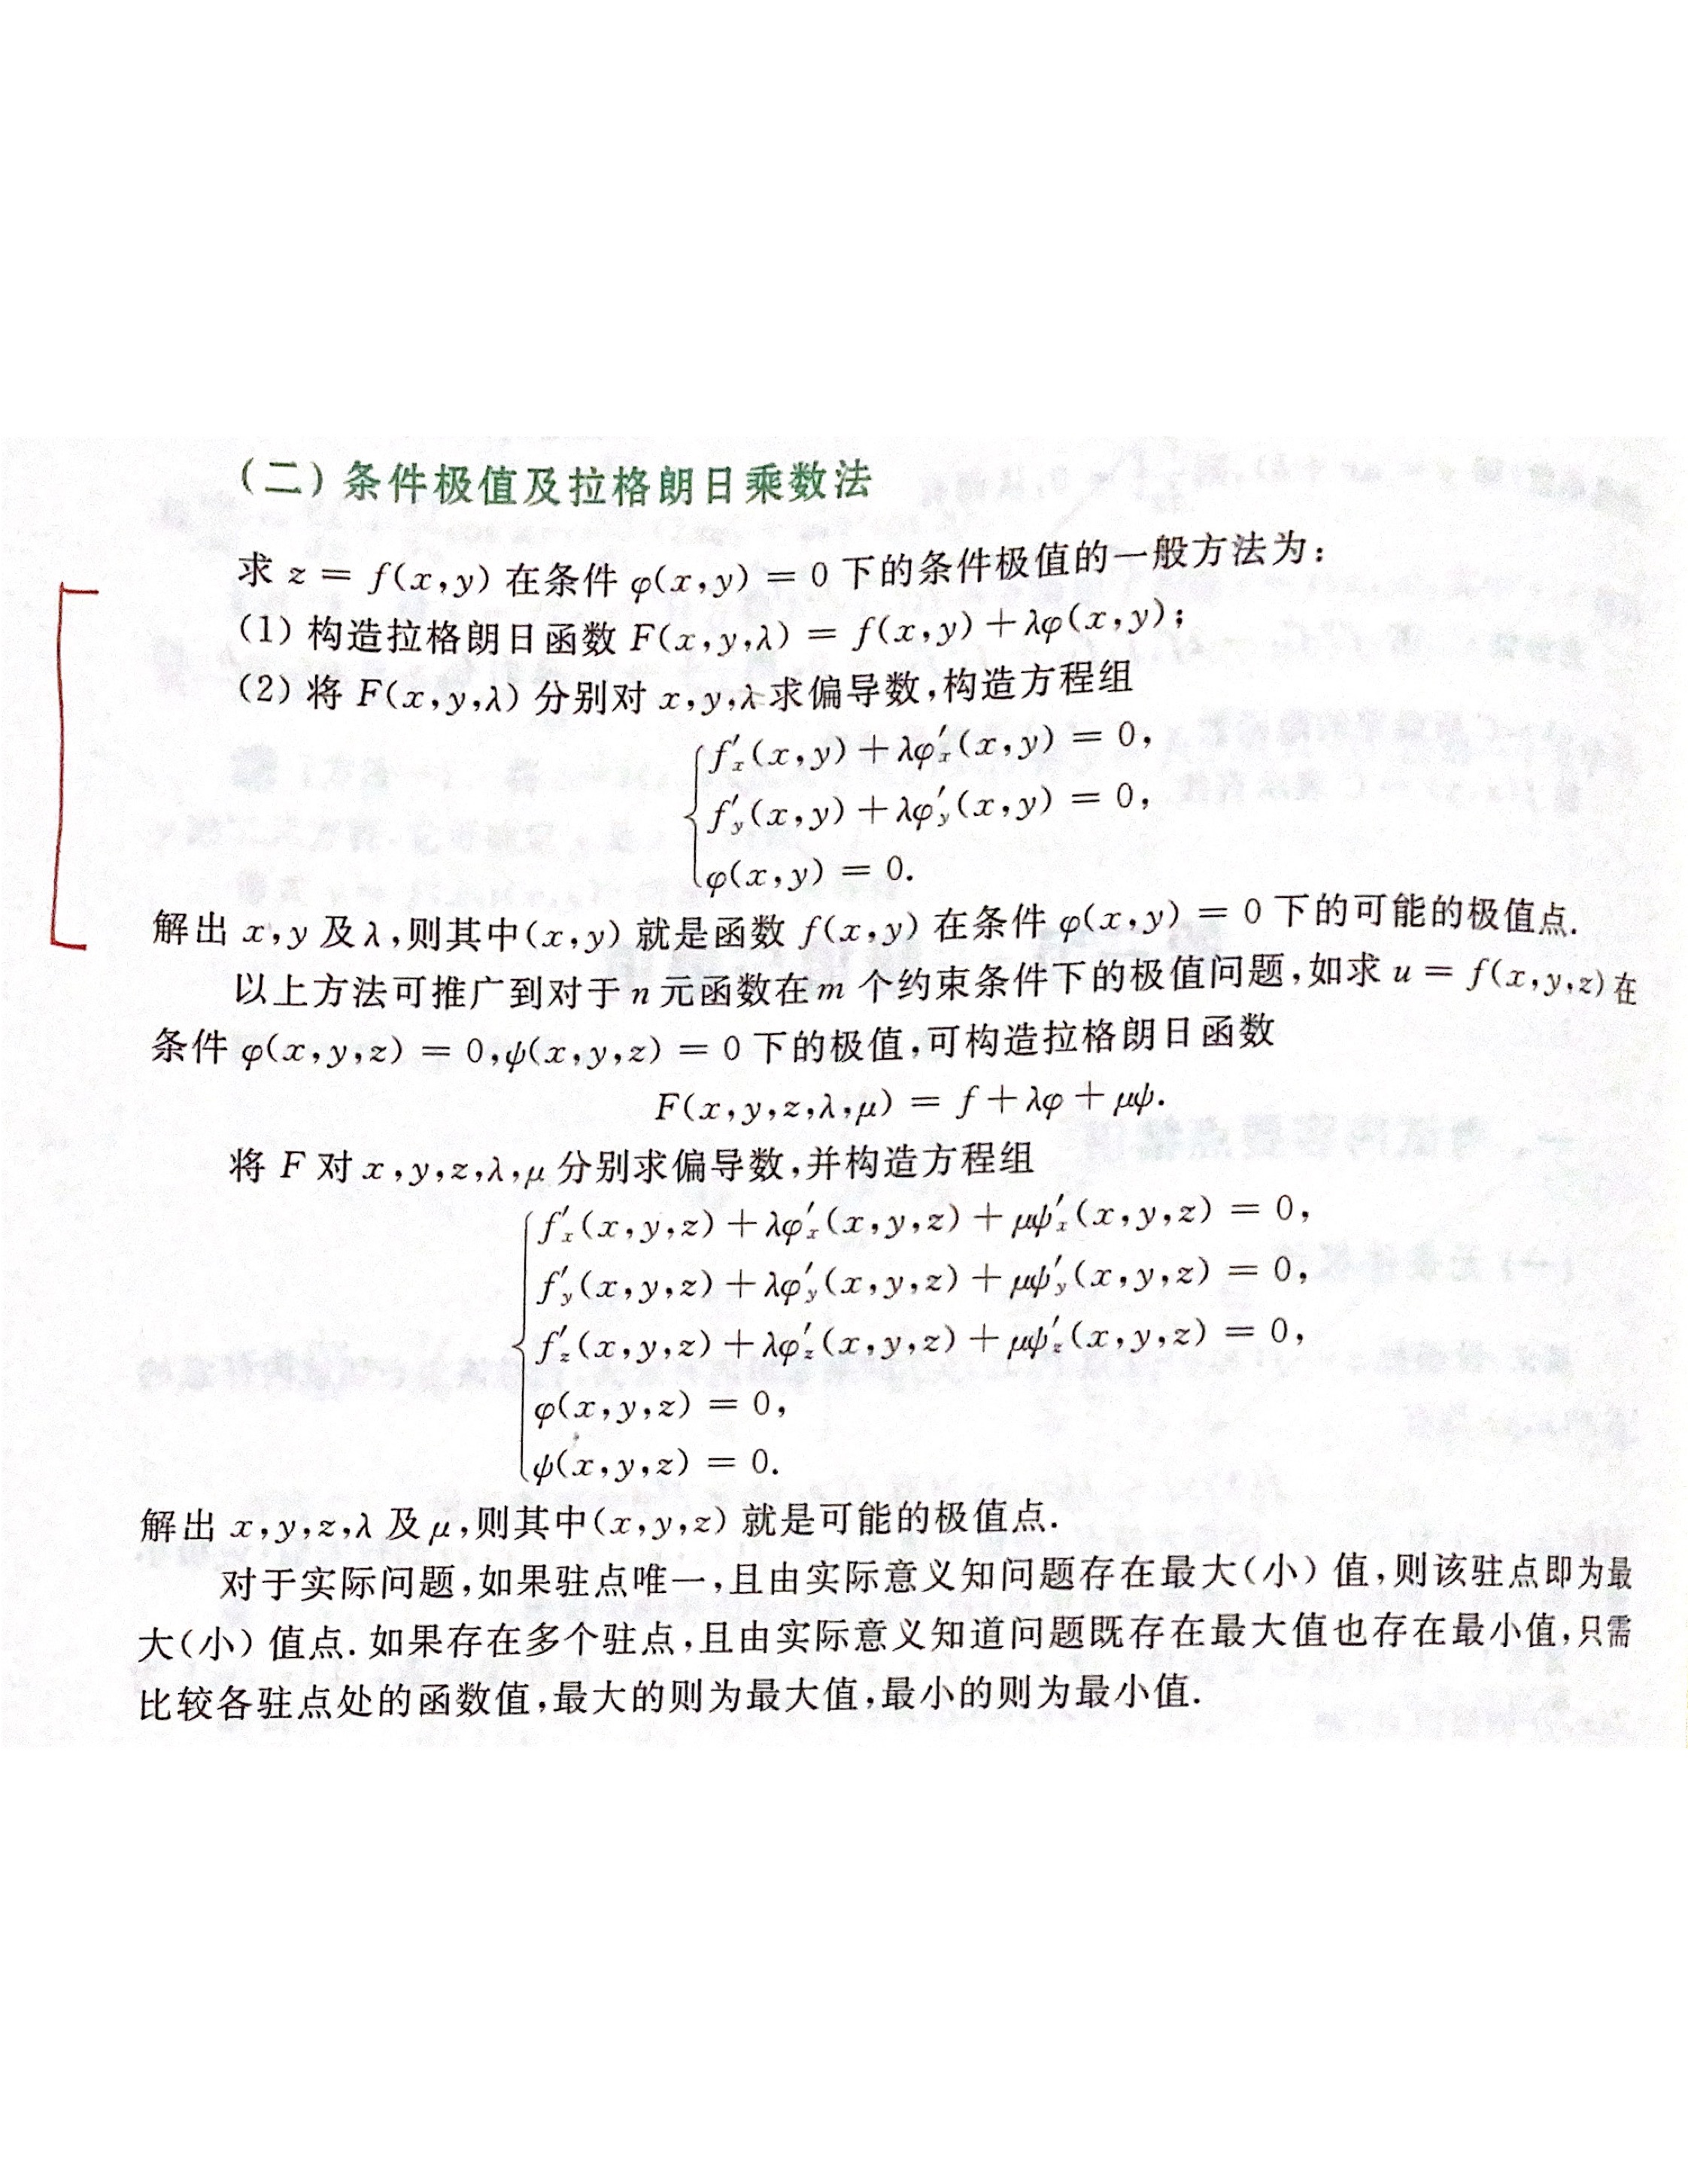 (二) 条件极值及拉格朗日乘数法
求 z = f(x,y) 在条件 φ(x,y) = 0 下的条件极值的一般方法为:
(1) 构造拉格朗日函数 F(x,y,λ) = f(x,y) + λφ(x,y);
(2) 将 F(x,y,λ) 分别对 x,y,λ 求偏导数,构造方程组
f′ₓ(x,y) + λφ′ₓ(x,y) = 0,
f′_y(x,y) + λφ′_y(x,y) = 0,
φ(x,y) = 0.
解出 x,y 及 λ,则其中(x,y) 就是函数 f(x,y) 在条件 φ(x,y) = 0 下的可能的极值点.
以上方法可推广到对于 n 元函数在 m 个约束条件下的极值问题,如求 u = f(x,y,z) 在
条件 φ(x,y,z) = 0,ψ(x,y,z) = 0 下的极值,可构造拉格朗日函数
F(x,y,z,λ,μ) = f + λφ + μψ.
将 F 对 x,y,z,λ,μ 分别求偏导数,并构造方程组
f′ₓ(x,y,z) + λφ′ₓ(x,y,z) + μψ′ₓ(x,y,z) = 0,
f′_y(x,y,z) + λφ′_y(x,y,z) + μψ′_y(x,y,z) = 0,
f′_z(x,y,z) + λφ′_z(x,y,z) + μψ′_z(x,y,z) = 0,
φ(x,y,z) = 0,
ψ(x,y,z) = 0.
解出 x,y,z,λ 及 μ,则其中(x,y,z) 就是可能的极值点.
对于实际问题,如果驻点唯一,且由实际意义知问题存在最大(小) 值,则该驻点即为最
大(小) 值点. 如果存在多个驻点,且由实际意义知道问题既存在最大值也存在最小值,只需
比较各驻点处的函数值,最大的则为最大值,最小的则为最小值.